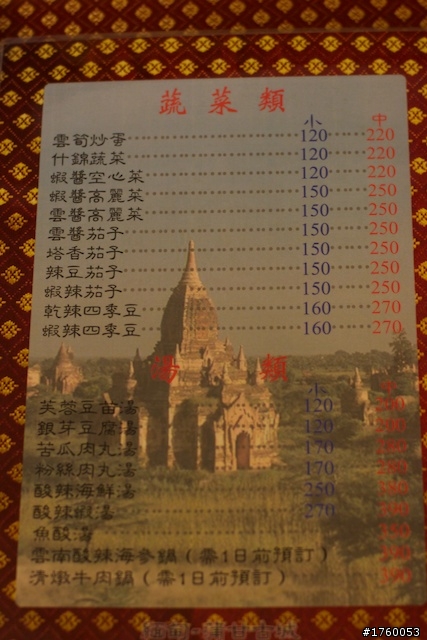 蔬菜類
小 中
雲筍炒蛋 120 220
什錦蔬菜 120 220
蝦醬空心菜 120 220
蝦醬高麗菜 150 250
雲醬高麗菜 150 250
雲醬茄子 150 250
塔香茄子 150 250
辣豆茄子 150 250
蝦辣茄子 150 250
乾辣四季豆 160 270
蝦辣四季豆 160 270
湯類
小 中
芙蓉豆苗湯 120
銀芽豆腐湯 120
苦瓜肉丸湯 170
粉絲肉丸湯 170
酸辣海鮮湯 250
酸辣蝦湯 270
魚酸湯
雲南酸辣海參鍋(需1日前預訂)
清燉牛肉鍋(需1日前預訂)
#1760053